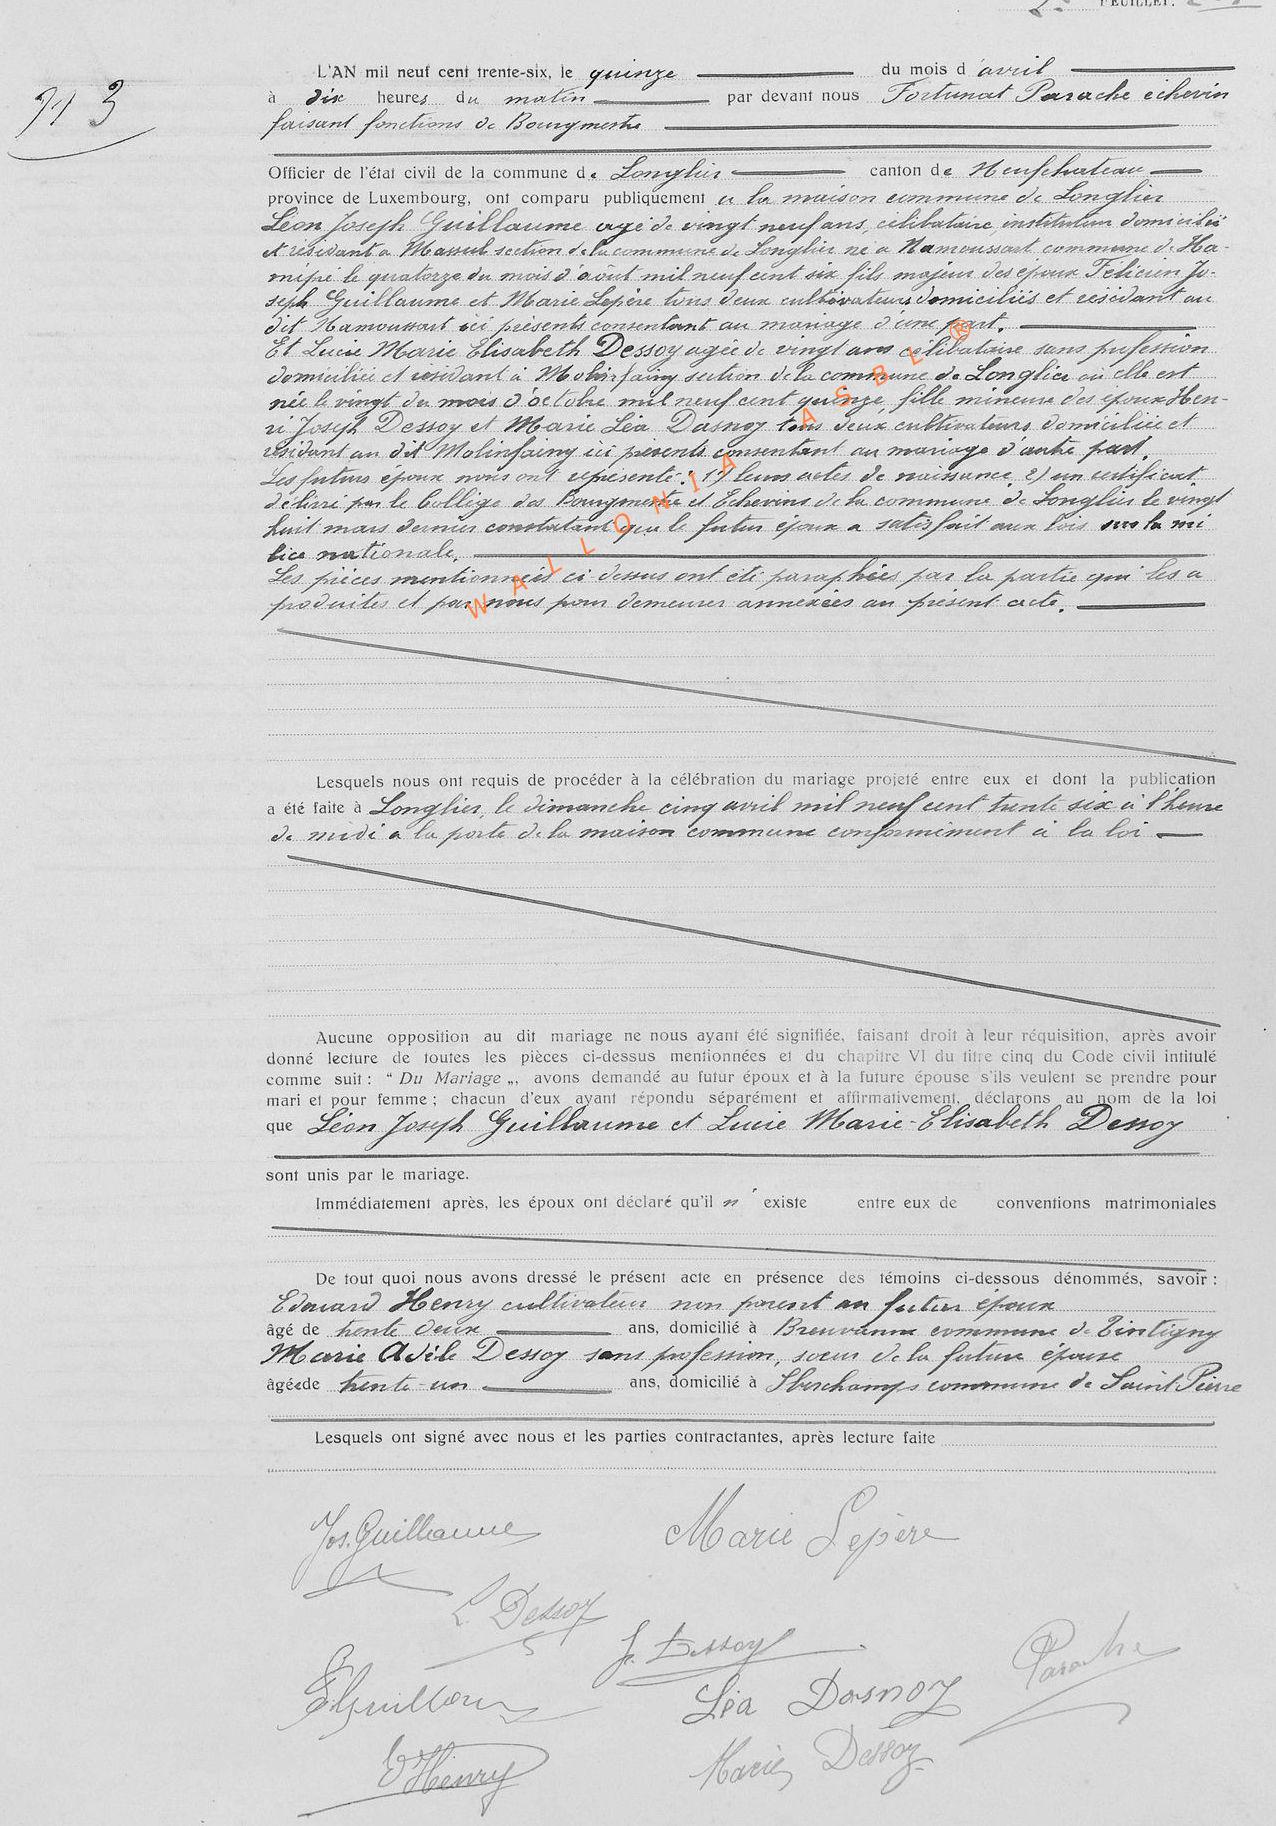 FEUILLET.
N 3
L'AN mil neuf cent trente-six, le quinze du mois d'avril
à dix heures du matin par devant nous Fortunat Parache échevin
faisant fonctions de Bourgmestre
Officier de l'état civil de la commune de Longlier canton de Neufchateau
province de Luxembourg, ont comparu publiquement a la maison commune de Longlier
Léon Joseph Guillaume agé de vingt neuf ans, célibataire, instituteur domicilié
et résidant a Massul section de la commune de Longlier né a Namoussart commune de Ha-
mipré le quatorze du mois d'aout mil neuf cent six, fils majeur des époux Félicien Jo-
seph Guillaume et Marie Lepère tous deux cultivateurs domiciliés et résidant au
dit Namoussart ici présents consentant au mariage d'une part.
Et Lucie Marie Elisabeth Dessoy agée de vingt ans célibataire sans profession
domiciliée et résidant à Molinfaing section de la commune de Longlier où elle est
née le vingt du mois d'octobre mil neuf cent quinze, fille mineure des époux Hen-
ri Joseph Dessoy et Marie Léa Dasnoy tous deux cultivateurs domiciliés et
résidant au dit Molinfaing ici présents consentant au mariage d'autre part.
Les futurs époux nous ont représenté: 1) leurs actes de naissance. 2) un certificat
délivré par le Collège des Bourgmestre et Echevins de la commune de Longlier le vingt
huit mars dernier constatant que le futur époux a satisfait aux lois sur la mi
lice nationale.
Les pièces mentionnées ci-dessus ont été paraphées par la partie qui les a
produites et par nous pour demeurer annexées au présent acte.
WALLONIA ASBL ®
Lesquels nous ont requis de procéder à la célébration du mariage projeté entre eux et dont la publication
a été faite à Longlier, le dimanche cinq avril mil neuf cent trente six à l'heure
de midi a la porte de la maison commune conformément à la loi
Aucune opposition au dit mariage ne nous ayant été signifiée, faisant droit à leur réquisition, après avoir
donné lecture de toutes les pièces ci-dessus mentionnées et du chapitre VI du titre cinq du Code civil intitulé
comme suit : " Du Mariage „, avons demandé au futur époux et à la future épouse s'ils veulent se prendre pour
mari et pour femme ; chacun d'eux ayant répondu séparément et affirmativement, déclarons au nom de la loi
que Léon Joseph Guillaume et Lucie Marie-Elisabeth Dessoy
sont unis par le mariage.
Immédiatement après, les époux ont déclaré qu'il n' existe entre eux de conventions matrimoniales
De tout quoi nous avons dressé le présent acte en présence des témoins ci-dessous dénommés, savoir :
Edouard Henry cultivateur non parent au futur époux
âgé de trente deux ans, domicilié à Breuvanne commune de Tintigny
Marie Adèle Dessoy sans profession, soeur de la future épouse
âgée de trente-un ans, domicilié à Sberchamps commune de Saint-Pierre
Lesquels ont signé avec nous et les parties contractantes, après lecture faite
Jos. Guillaume Marie Lepère
L. Dessoy
J. Dessoy Parache
Guillaume Léa Dasnoy
E Henry Marie Dessoy